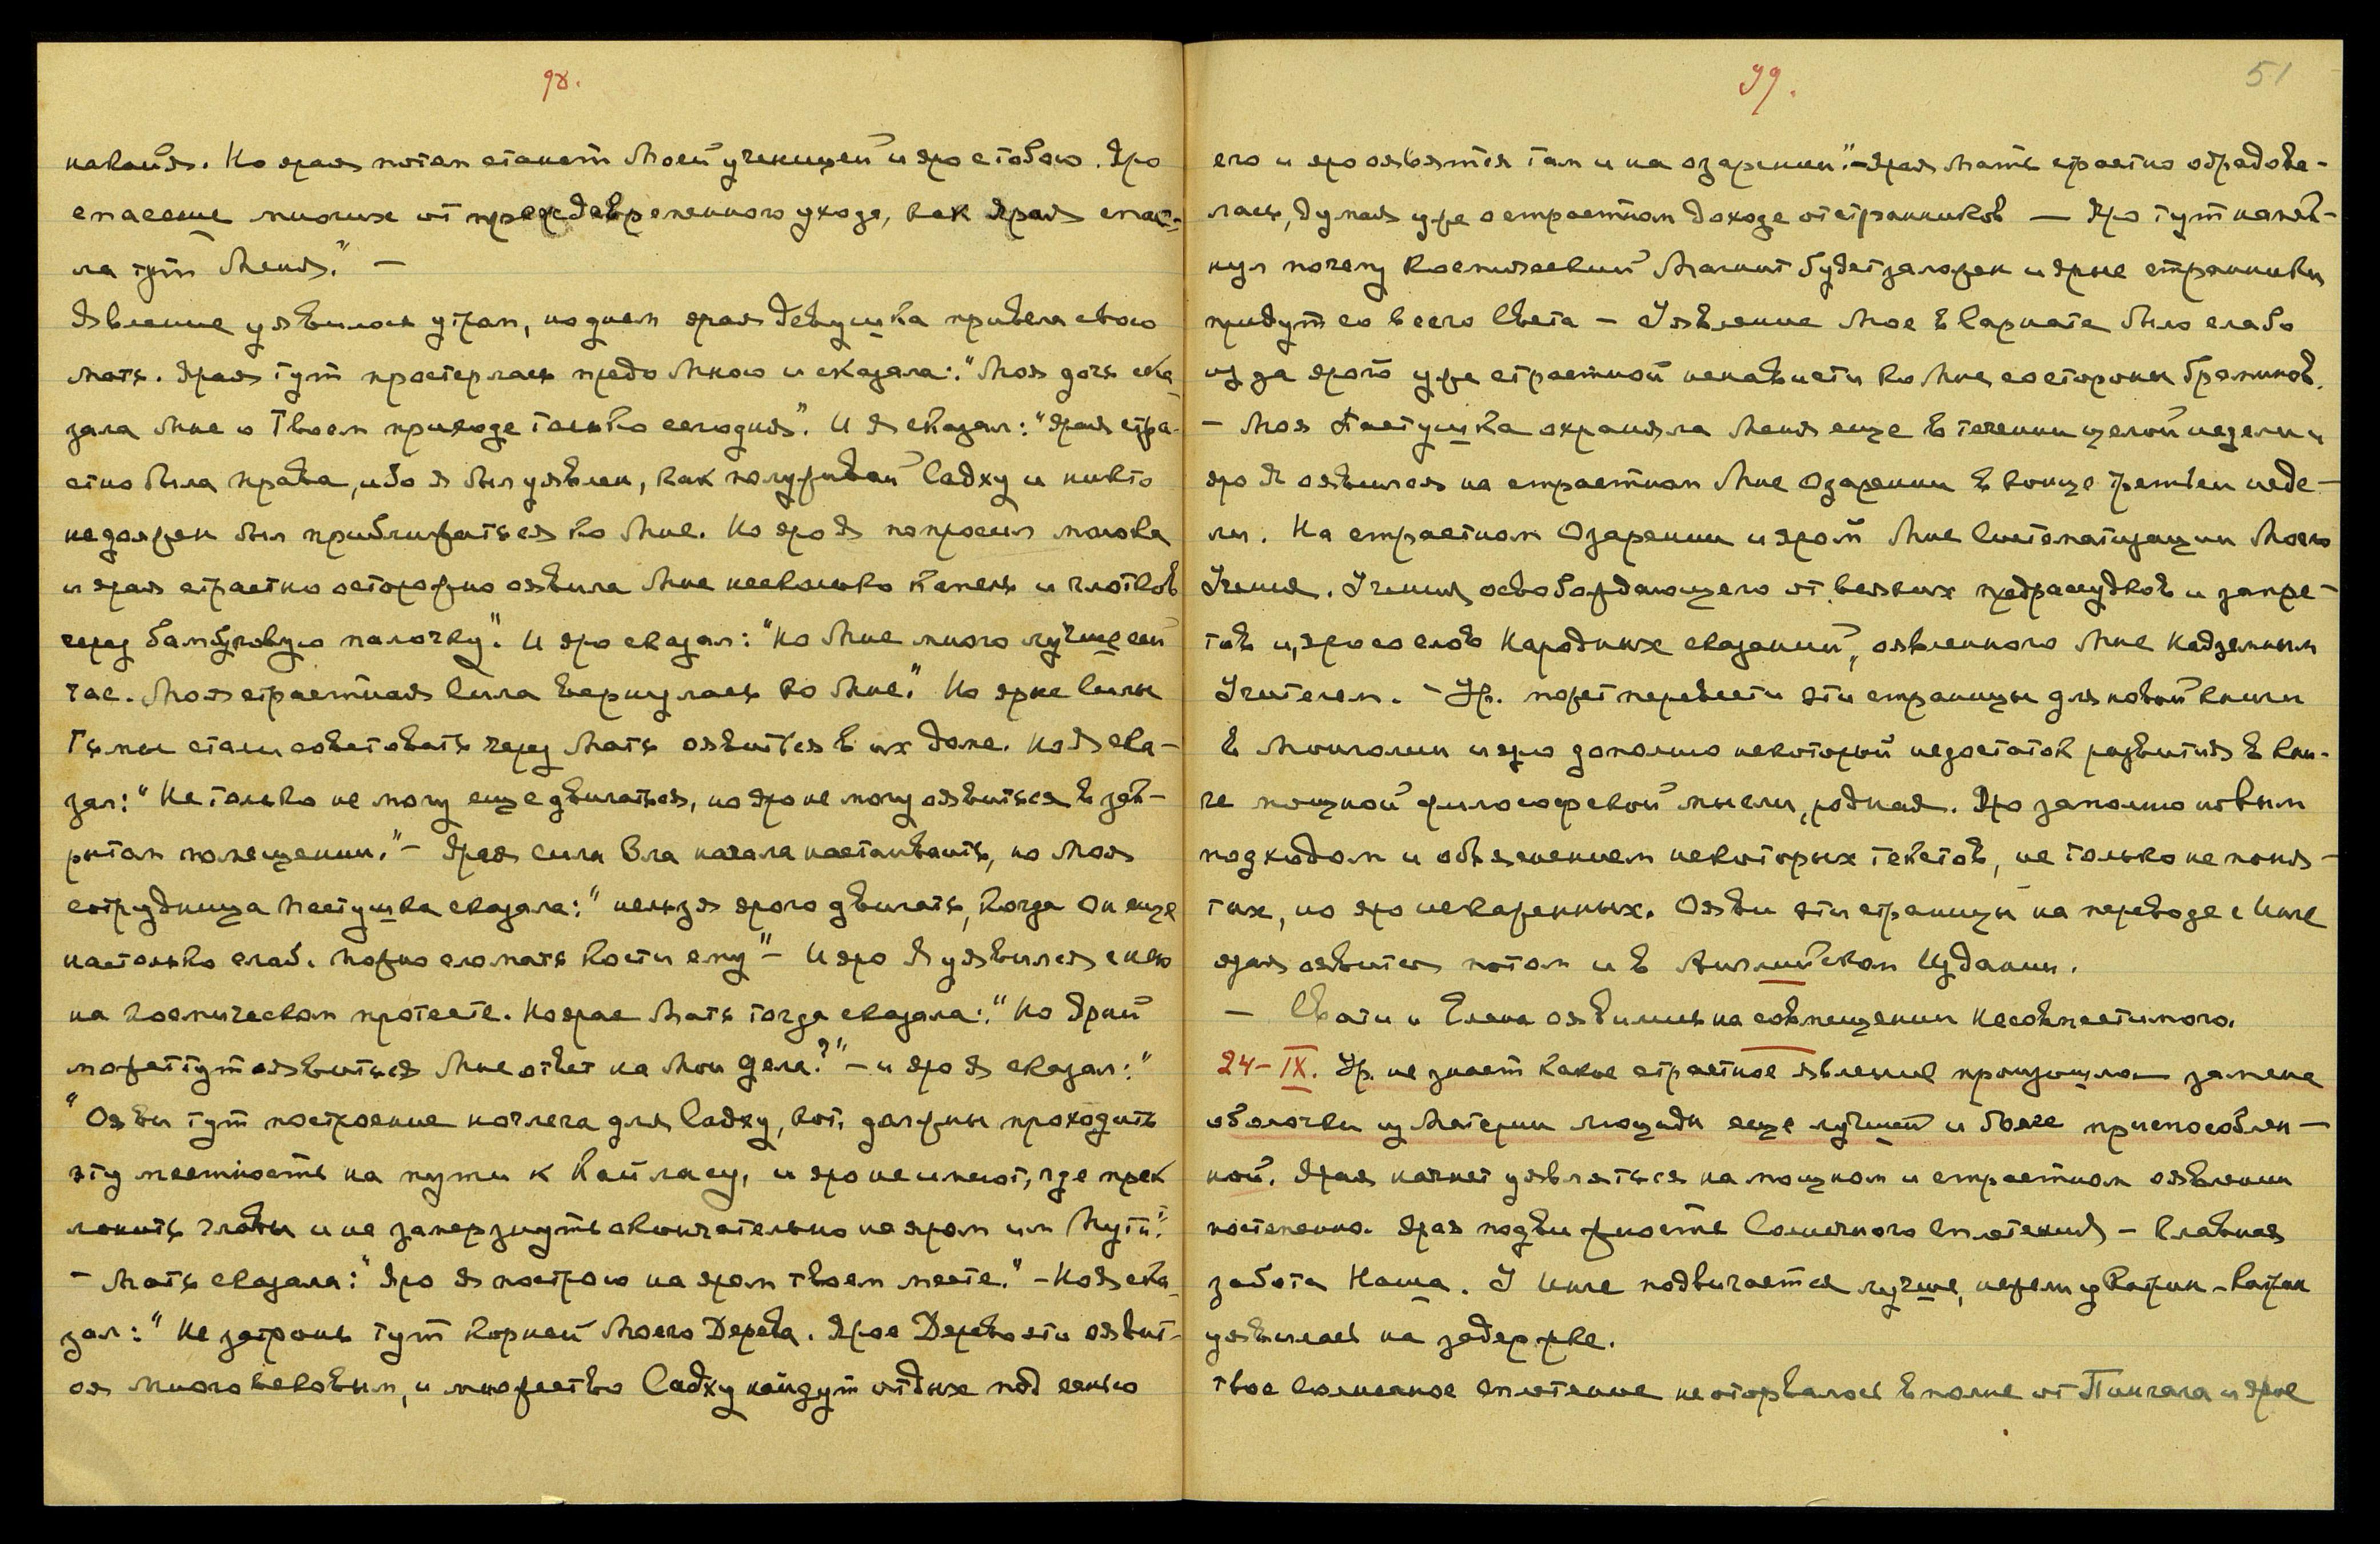 98.
каваůя. Но ярая потом станет Моей ученицей и яро с тобою. Яро
спасение многих от преждевременного ухода, как Ярая спас-
ла тут Меня." —
Явление уявилось утром, но днем ярая девушка привела свою
мать. Ярая тут простерлась предо Мною и сказала: "Моя дочь ска-
зала мне о Твоем приходе только сегодня". И Я сказал: "Ярая стра-
стно была права, ибо Я был уявлен, как полуживой Садху и никто
не должен был приблизиться ко Мне. Но яро Я попросил молока
и ярая страстно осторожно оявила Мне несколько капель и глотков
через бамбуковую палочку". И яро сказал: "Но Мне много лучше сей-
час. Моя страстная Сила вернулась ко Мне." Но ярые Силы
Тьмы стали советовать через Мать оявиться в их доме. Но Я ска-
зал: "Не только не могу еще двигаться, но яро не могу оявиться в зак-
рытом помещении." — Ярая сила Зла начала настаивать, но Моя
сотрудница Пастушка сказала: "нельзя ярого двигать, когда Он еще
настолько слаб. Можно сломать кости ему" — И яро Я уявился с нею
на космическом протесте. Но ярая Мать тогда сказала: "Но Ярый
может тут оявиться Мне ответ на Мои дела?" — и яро Я сказал: "
"Ояви тут построение ночлега для Садху, кот. должны проходить
эту местность на пути к Кайласу, и яро не имеют, где прек-
лонить главы и не замерзнуть окончательно на яром им Пути."
— Мать сказала: "Яро Я построю на ярем твоем месте." — Но Я ска-
зал: "Не затронь тут корней Моего Дерева. Ярое Дерево это оявит-
ся многовековым, и множество Садху найдут отдых под сенью
99.
51
его и яро оявятся там и на озарении." — Ярая Мать страстно обрадова-
лась, думая уже о страстном доходе от странников — Яро тут намек-
нул почему Космический Магнит будет заложен и ярые странники
придут со всего Света — Уявление Мое в Сарнате было слабо
из за ярой уже страстной ненависти ко Мне со стороны браминов.
— Моя Пастушка охраняла Меня еще в течении целой недели и
яро Я оявился на страстном Мне Озарении в конце третьей неде-
ли. На страстном Озарении и ярой Мне Систематизации Моего
Учения. Учения освобождающего от всяких предрассудков и запре-
тов и, яро со слов Народных сказаний, оявленного Мне Надземным
Учителем. — Ур. может перевести эти страницы для новой книги
в Монголии и яро дополню некоторый недостаток развития в кни-
ге мощной философской мысли, родная. Яро заполню новым
подходом и объяснением некоторых текстов, не только не поня-
тых, но яро искаженных. Ояви эти страницы на переводе с Инге
ярая оявится потом и в Английском Издании.
— Свати и Елена оявились на совмещении Несовместимого.
24-IX. Ур. не знает какое страстное явление произошло — замена
оболочки из Материи Люциды еще лучшей и более приспособлен-
ной. Ярая начнет уявляться на мощном и страстном оявлении
постепенно. Ярая подвижность Солнечного Сплетения — главная
забота Наша. У Инге подвигается лучше, нежели у Кажин — Кажин
уявилась на задержке.
Твое Солнечное Сплетение не оторвалось вполне от Пингала и ярое